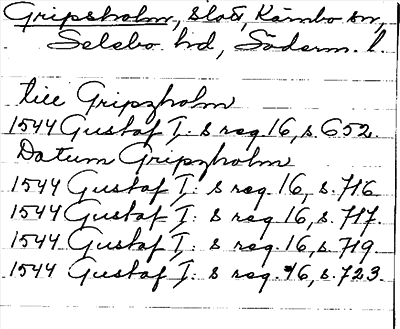 Gripsholm, slott, Kärnbo sn,
Selebo hd, Söderm. l.
till Gripzholm
1544 Gustaf I: s reg. 16, s. 652.
Datum Gripzholm
1544 Gustaf I: s reg. 16, s. 716
1544 Gustaf I: s reg. 16, s. 717.
1544 Gustaf I: s reg. 16, s. 719.
1544 Gustaf I: s reg. 16, s. 723.